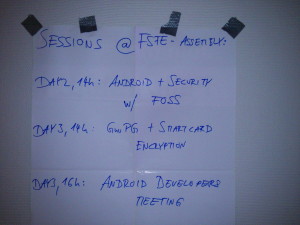 SESSIONS @ FSFE-ASSEMBLY:
DAY 2, 14h: ANDROID + SECURITY
W/ FOSS
DAY 3, 14h: GnuPG + SMARTCARD
ENCRYPTION
DAY 3, 16h: ANDROID DEVELOPERS
MEETING